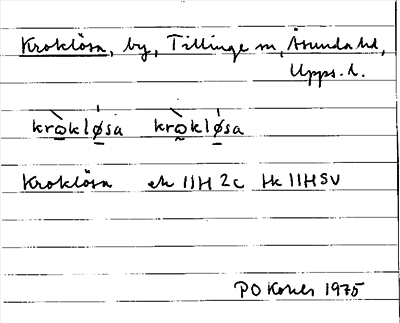 Kroklösa, by, Tillinge sn, Åsunda hd,
Upps. l.
kròkløsa kròkløsa
Kroklösa ek 11H 2c Hk 11HSV
PO 1975